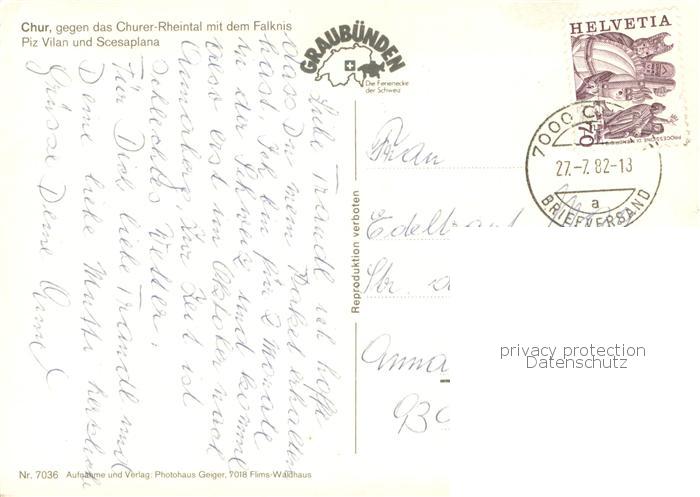 Chur, gegen das Churer-Rheintal mit dem Falknis
Piz Vilan und Scesaplana
GRAUBÜNDEN
Die Ferienecke
der Schweiz
HELVETIA
70
PROCESSIONE DI MENDRISIO
7000 C
27.-7.82-13
a
BRIEFVERSAND
Liebe Traudl ich hoffe
dass Du mein Paket erhalten
hast. Ich bin für 2 Monate
in der Schweiz und komme
also erst im Oktober nach
Annaberg. Zur Zeit ist
schlechtes Wetter.
Für Dich liebe Traudl und
Deine liebe Mutti herzliche
Grüsse Deine
Reproduktion verboten
Frau
Edeltraud
Str. d
Anna
privacy protection
Datenschutz
Nr. 7036 Aufnahme und Verlag: Photohaus Geiger, 7018 Flims-Waldhaus